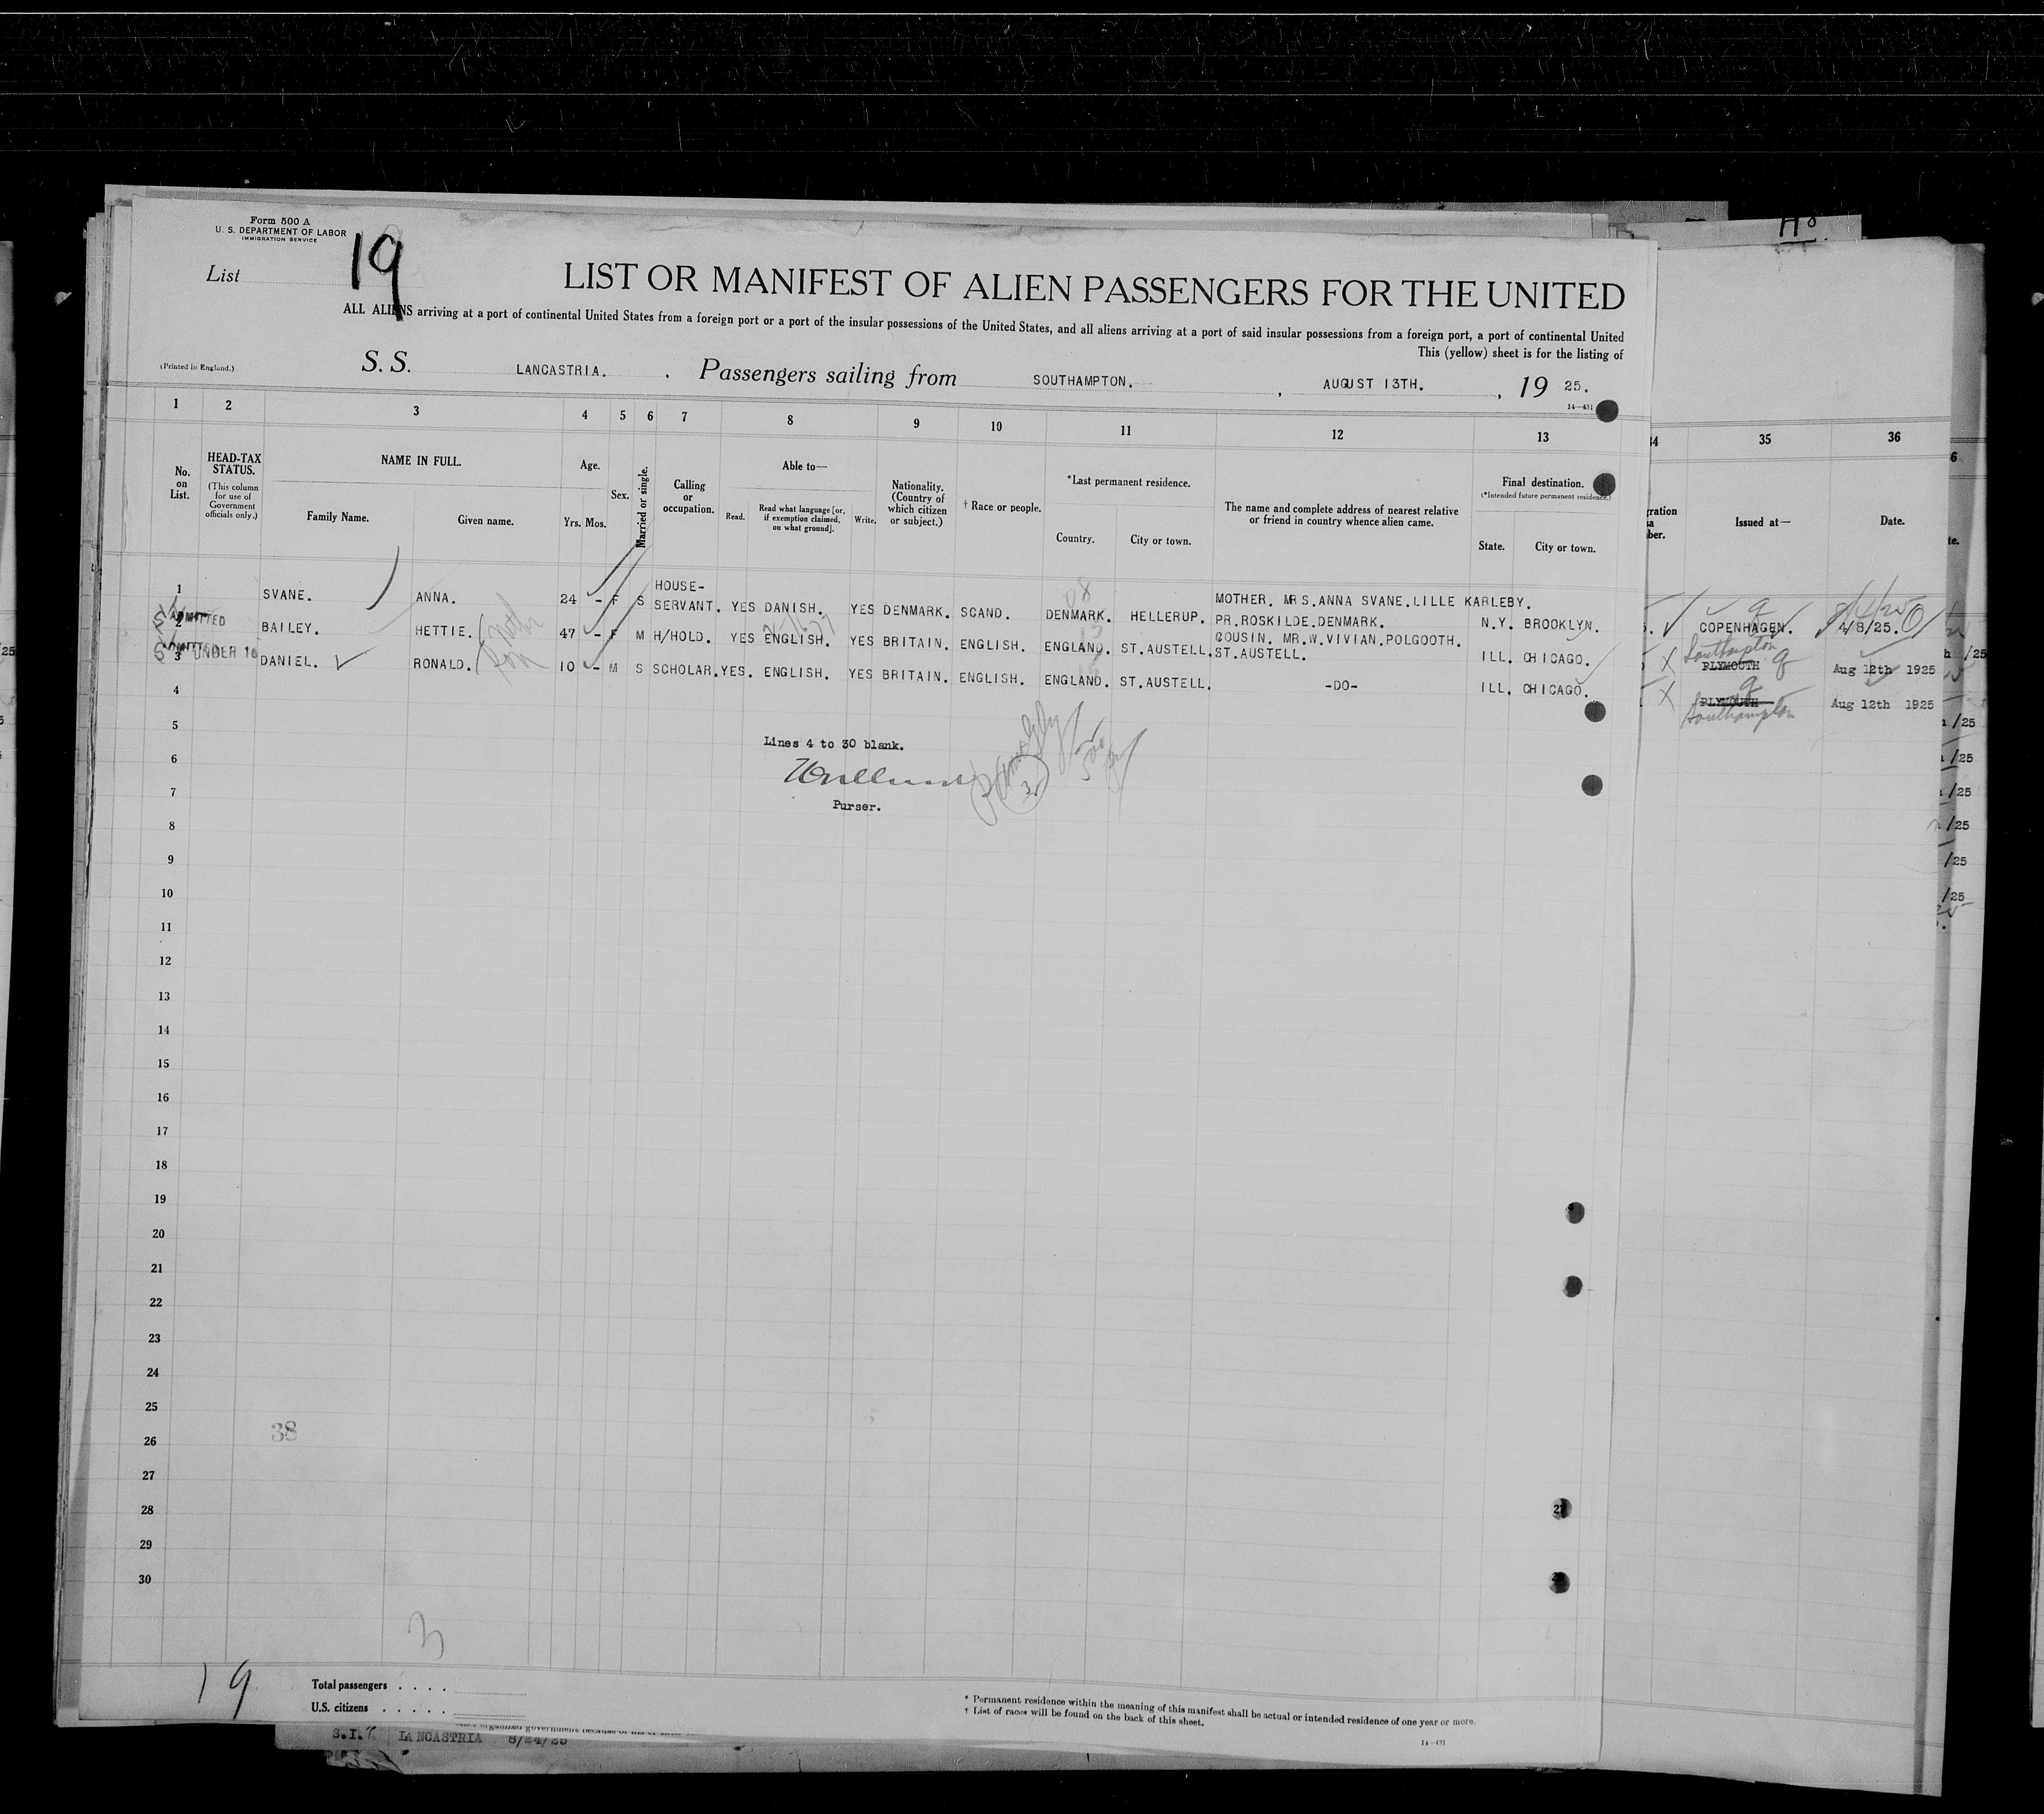 Form 500 A
U. S. DEPARTMENT OF LABOR
IMMIGRATION SERVICE
List 19
LIST OR MANIFEST OF ALIEN PASSENGERS FOR THE UNITED
ALL ALIENS arriving at a port of continental United States from a foreign port or a port of the insular possessions of the United States, and all aliens arriving at a port of said insular possessions from a foreign port, a port of continental United
This (yellow) sheet is for the listing of
(Printed in England.)
S. S. LANCASTRIA. Passengers sailing from SOUTHAMPTON. , AUGUST 13TH. , 19 25.
14—431
1 2 3 4 5 6 7 8 9 10 11 12 13 35 36
No. on List.
HEAD-TAX STATUS.
(This column for use of Government officials only.)
NAME IN FULL.
Family Name. Given name.
Age.
Yrs. Mos.
Sex.
Married or single.
Calling or occupation.
Able to—
Read. Read what language [or, if exemption claimed, on what ground]. Write.
Nationality. (Country of which citizen or subject.)
† Race or people.
*Last permanent residence.
Country. City or town.
The name and complete address of nearest relative or friend in country whence alien came.
Final destination.
(*Intended future permanent residence.)
State. City or town.
Issued at—
Date.
1 SVANE. ANNA. 24 - F S HOUSE-SERVANT. YES DANISH. YES DENMARK. SCAND. DENMARK. HELLERUP. MOTHER. MRS.ANNA SVANE.LILLE KARLEBY. PR.ROSKILDE.DENMARK. N.Y. BROOKLYN. COPENHAGEN. 4/8/25.
ADMITTED
2 BAILEY. HETTIE. 47 - F M H/HOLD. YES ENGLISH. YES BRITAIN. ENGLISH. ENGLAND. ST.AUSTELL. COUSIN. MR.W.VIVIAN.POLGOOTH. ST.AUSTELL. ILL. CHICAGO. Southampton PLYMOUTH Aug 12th 1925
ADMITTED UNDER 16
3 DANIEL. RONALD. 10 - M S SCHOLAR. YES. ENGLISH. YES BRITAIN. ENGLISH. ENGLAND. ST.AUSTELL. -DO- ILL. CHICAGO. PLYMOUTH Southampton Aug 12th 1925
4
5
Lines 4 to 30 blank.
6
7
Purser.
8
9
10
11
12
13
14
15
16
17
18
19
20
21
22
23
24
25
38
26
27
28
29
30
3
19
Total passengers . . . .
U.S. citizens . . . . .
* Permanent residence within the meaning of this manifest shall be actual or intended residence of one year or more.
† List of races will be found on the back of this sheet.
14—431
S.I. LANCASTRIA 8/24/25